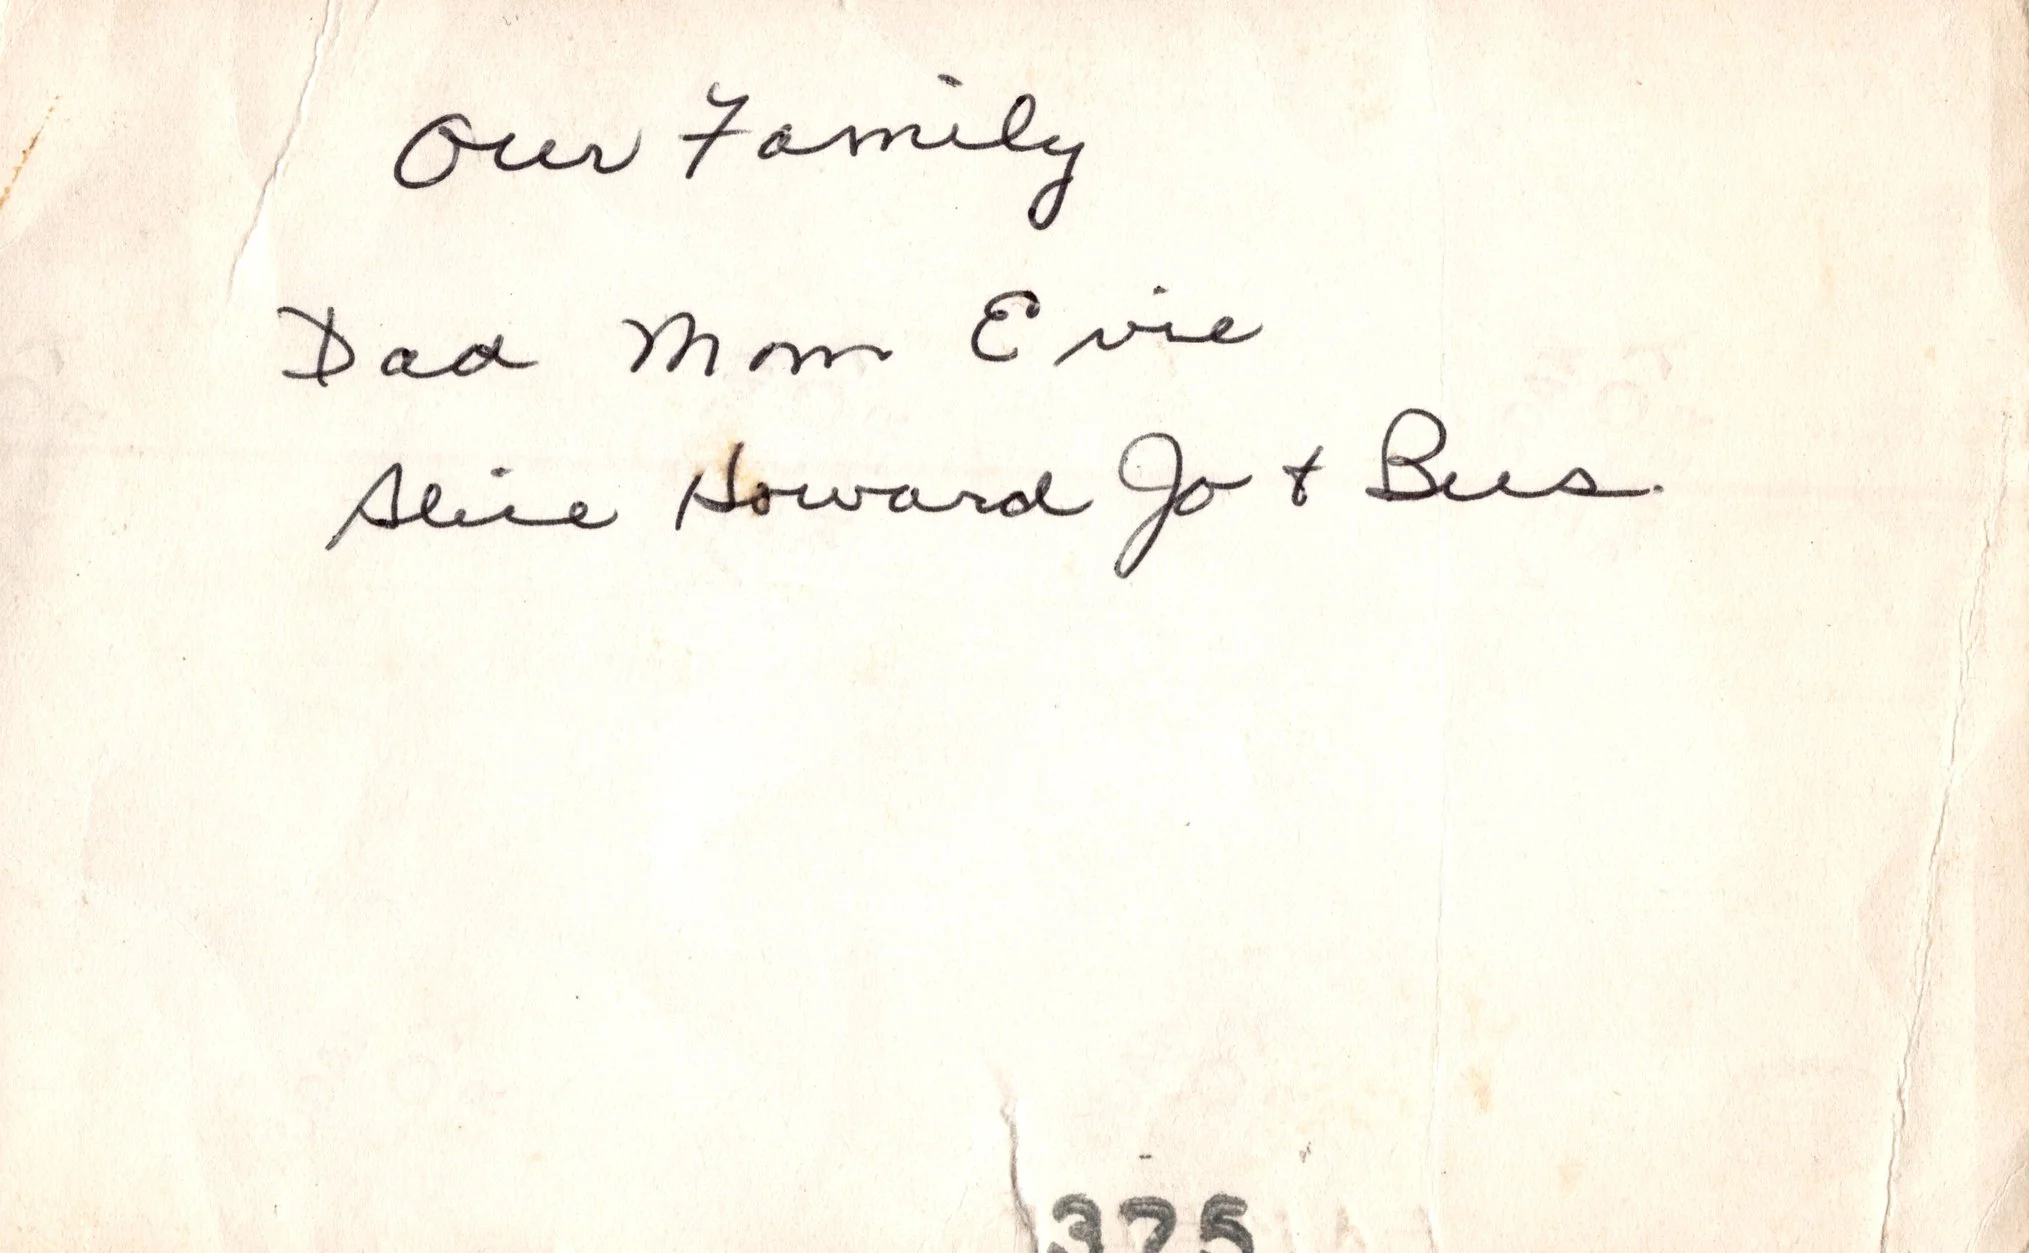 Our Family
Dad Mom Evie
Alice Howard Jo + Bus.
375